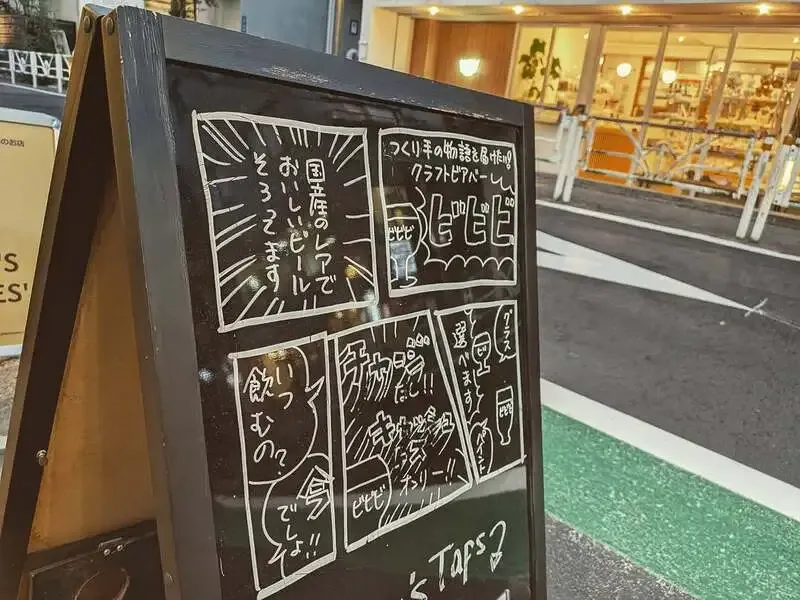 つくり手の物語を届けたい!
クラフトビアバー
ビビビ
ビビビ
国産のレアで
おいしいビール
そろってます
グラス
選べます
ビビビ
パイント
チャージ
なし!!
キャッシュ
レス
オンリー!!
ビビビ
いつ
飲むの?
今
でしょ!!
's Taps?
のお店
'S
ES'